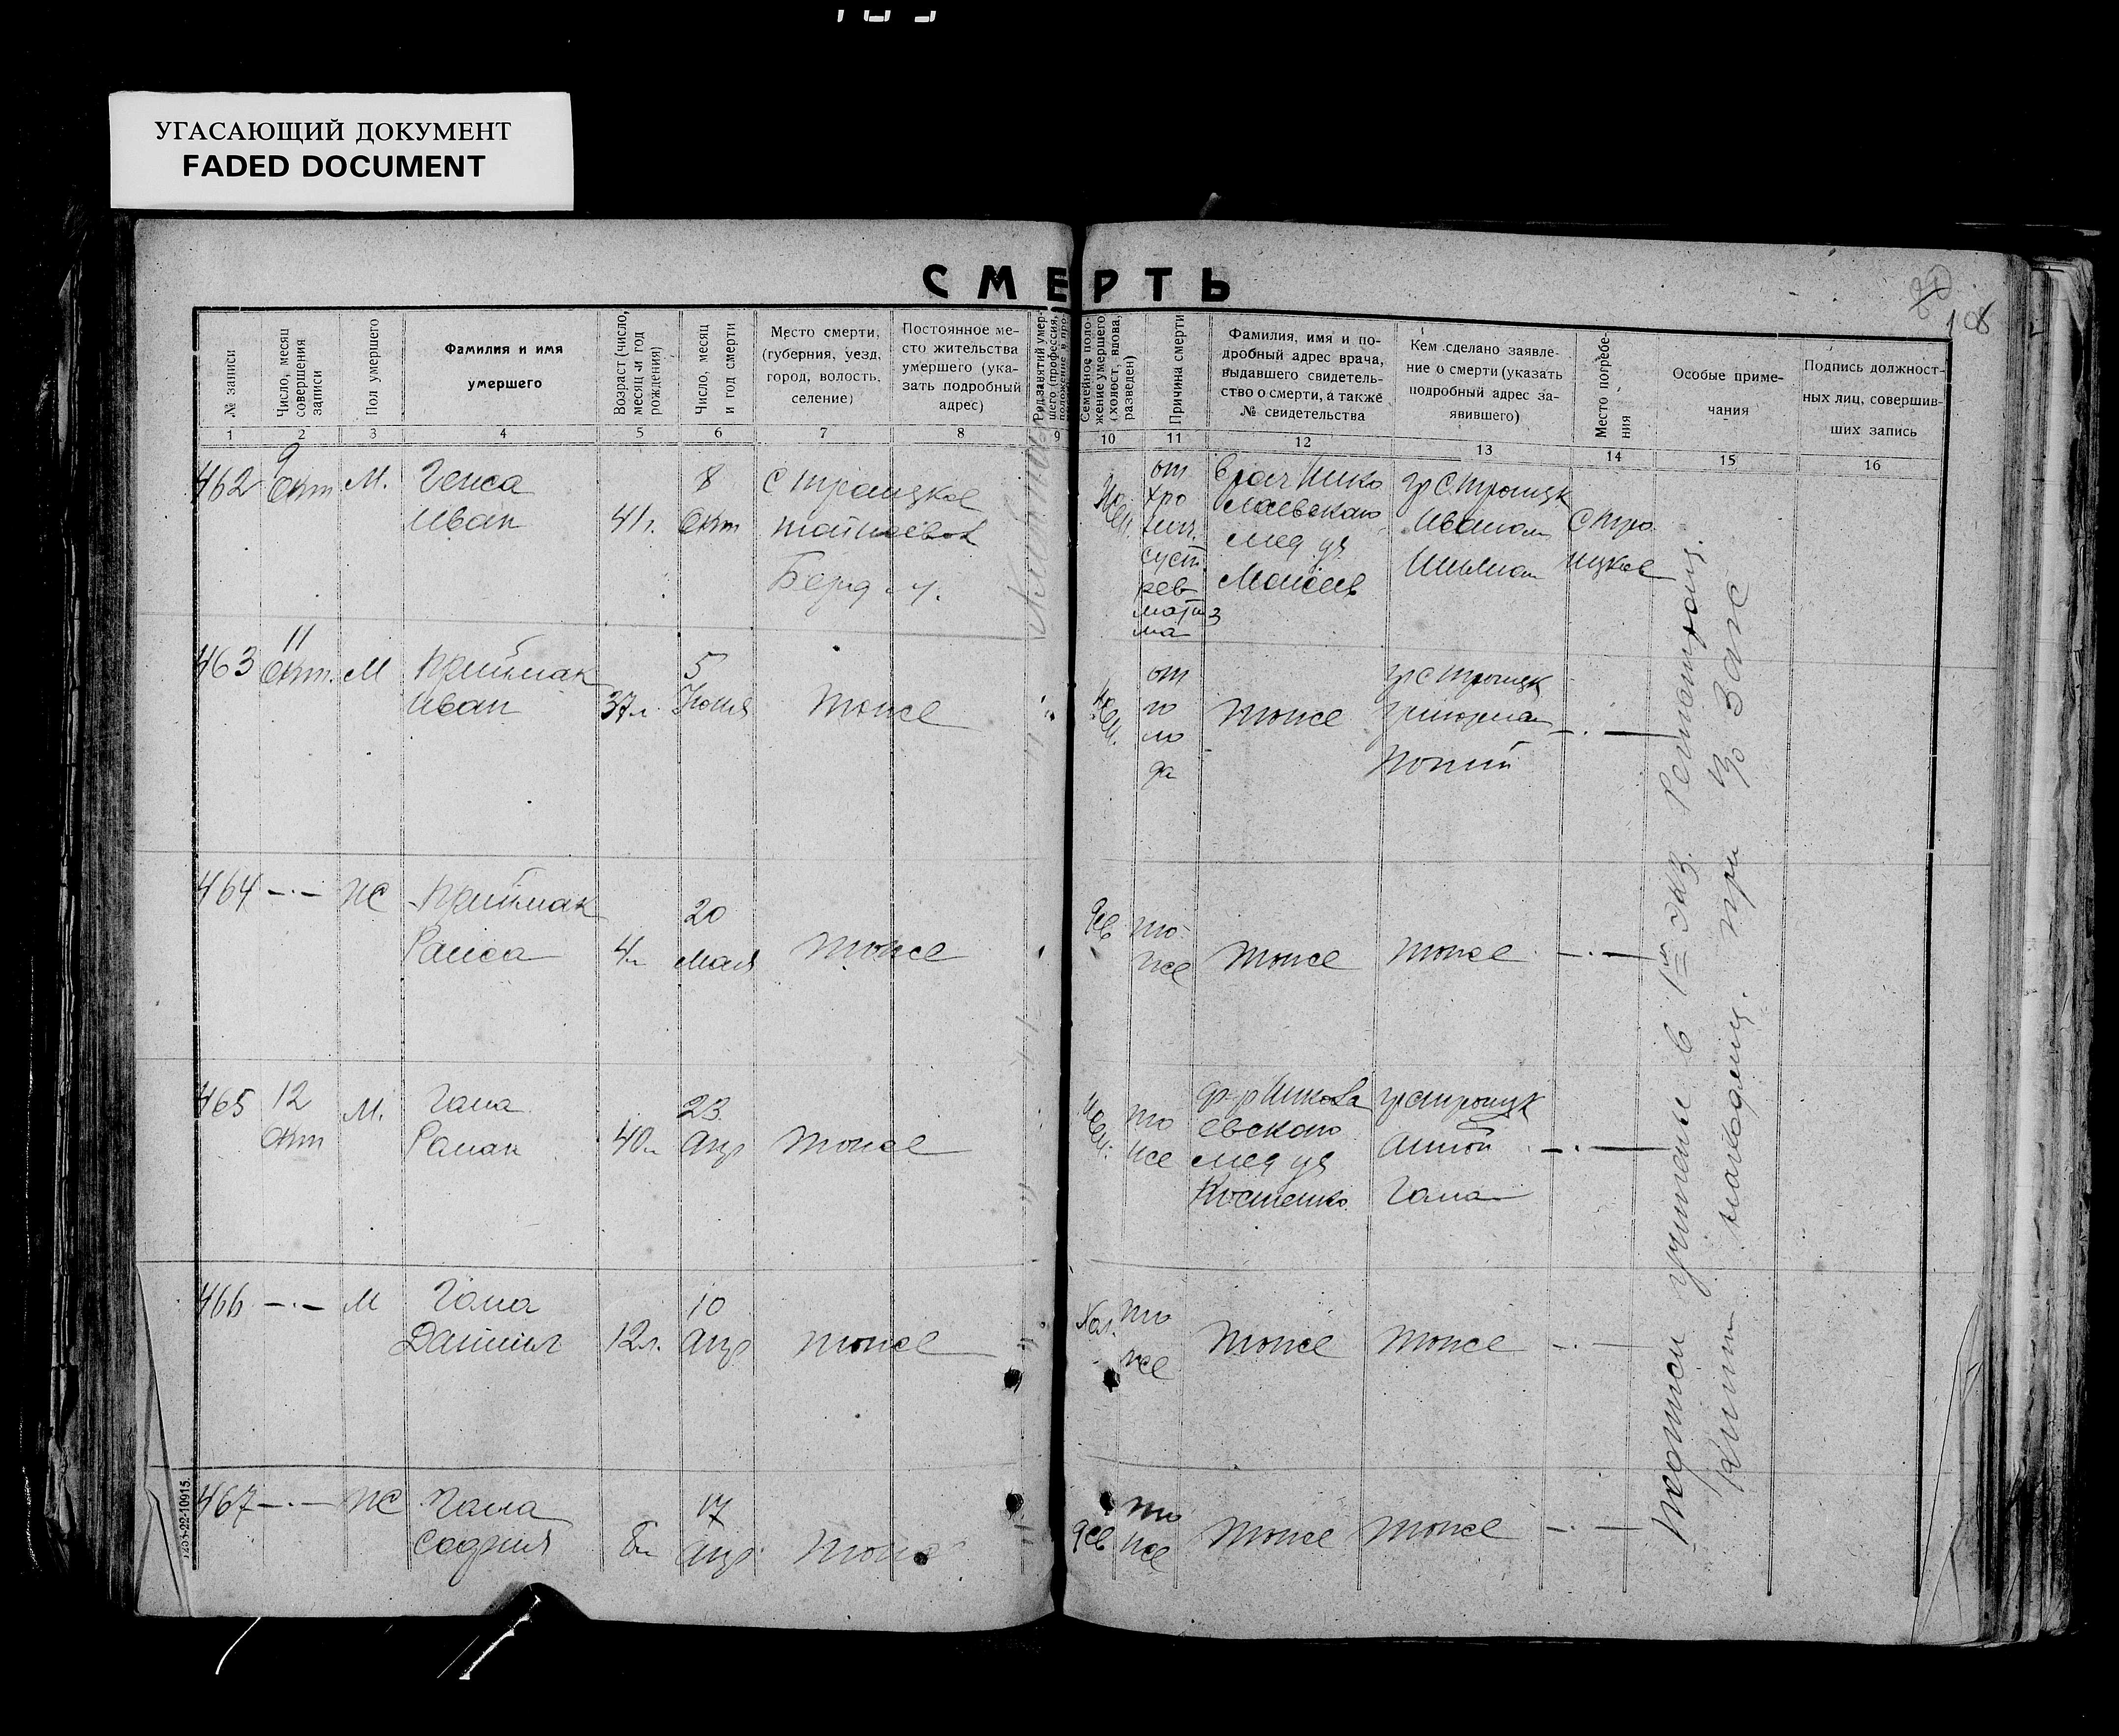 УГАСАЮЩИЙ ДОКУМЕНТ
FADED DOCUMENT
СМЕРТЬ
108
№ записи
Число, месяц
совершения
записи
Пол умершего
Фамилия и имя
умершего
Возраст (число,
месяц и год
рождения)
Число, месяц
и год смерти
Место смерти,
(губерния, уезд,
город, волость,
селение)
Постоянное ме-
сто жительства
умершего (ука-
зать подробный
адрес)
Род занятий умер-
шего (профессия,
Семейное поло-
жение умершего
(холост, вдова,
разведен)
Причина смерти
Фамилия, имя и по-
дробный адрес врача,
выдавшего свидетель-
ство о смерти, а также
№ свидетельства
Кем сделано заявле-
ние о смерти (указать
подробный адрес за-
явившего)
Место погребе-
ния
Особые приме-
чания
Подпись должност-
ных лиц, совершив-
ших запись
1 2 3 4 5 6 7 8 9 10 11 12 13 14 15 16
462
9
Окт
М.
Иван
41 г.
8
Окт
С Троицкое
Берд. у.
от
хро
нич.
суст.
рев
матиз
ма
Врач Нико
лаевскаго
мед уч
Моисеев
гр С. Троицк
Иваном
С Тро
ицкое
463
11
Окт.
М
Приймак
Иван
37 л.
5
Июня
тоже
от
го
ло
да
тоже
гр С Троицк
464 —·— ЖС
Приймак
Раиса
4 л
20
мая
тоже
дев
то
же
тоже
тоже
—·—
465
12
Окт
М.
Гама
Роман
40 л
23
апр
тоже
то
же
д-р Никола
евскаго
мед уч
Костенко
гр С Троицк
Анной
Гама
—·—
466 —·— М
Гама
Даниил
12 л.
10
апр
тоже
Хол.
то
же
тоже
тоже
—·—
467 —·— ЖС
Гама
София
8 л
17
апр
тоже
дев
то
же
тоже
тоже
—·—
Подписи учинены в 1м экз. Регистрац.
книги находящ. при Уо Загс
1253-22-10915.